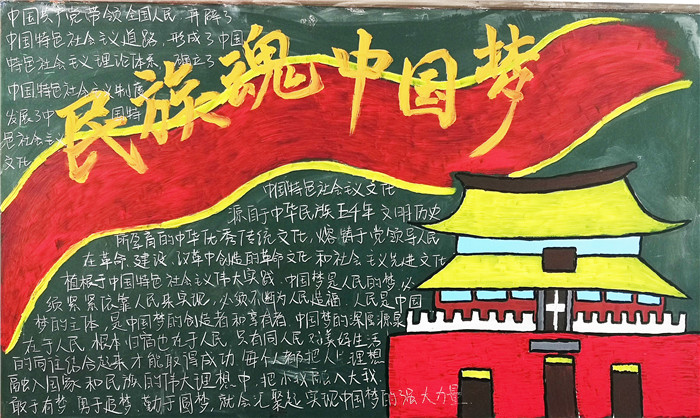 中国共产党带领全国人民 开辟了
中国特色社会主义道路,形成了中国
特色社会主义理论体系 确立了
中国特色社会主义制度
发展了中 国特
色社会主义
文化
民族魂中国梦
中国特色社会主义文化
源自于中华民族五千年文明历史
所孕育的中华优秀传统文化,熔铸于党领导人民
在革命、建设、改革中创造的革命文化和社会主义先进文化
植根于中国特色社会主义伟大实践.中国梦是人民的梦必
须紧紧依靠人民来实现,必须不断为人民造福.人民是中国
梦的主体,是中国梦的创造者和享有者.中国梦的深层源泉
在于人民 根本归宿也在于人民 只有同人民对美好生活
的向往结合起来才能取得成功 每个人都把人生理想
融入国家和民族的伟大理想中.把小我融入大我.
敢于有梦.勇于追梦.勤于圆梦,就会汇聚起实现中国梦的强大力量.